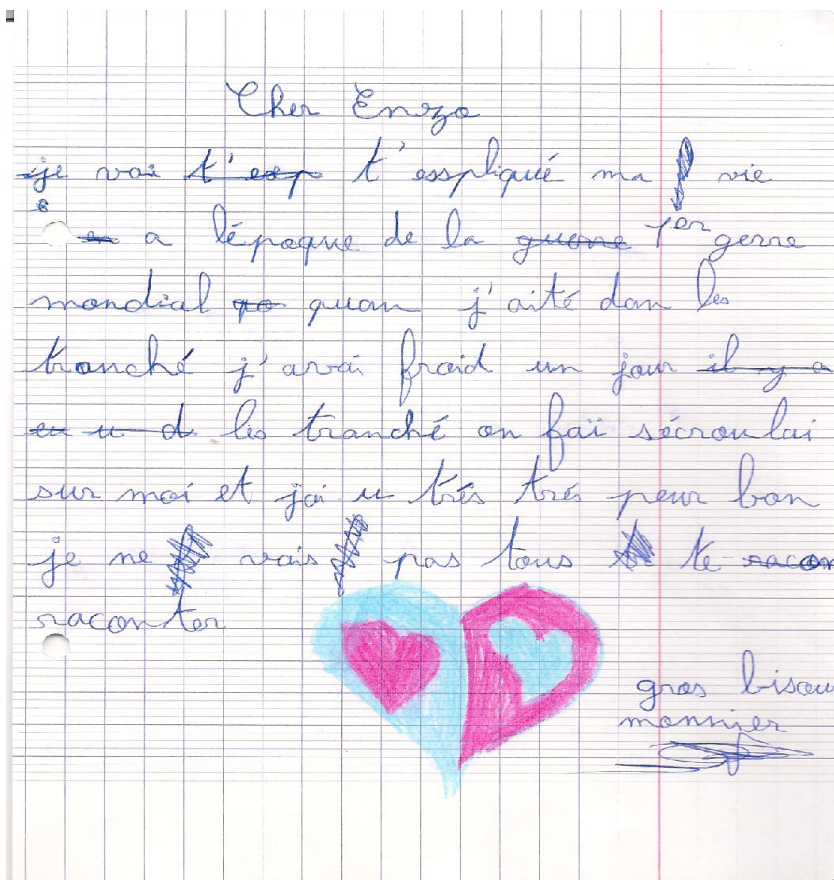 Cher Enzo
je vai t'esspliqué ma vie
a lépoque de la 1er gerre
mondial quan j'aité dan les
tranché j'avai froid un jour
les tranché on fai sécroulai
sur moi et jai u trés trés peur bon
je ne vais pas tous te
raconter
gros bisou
monnier